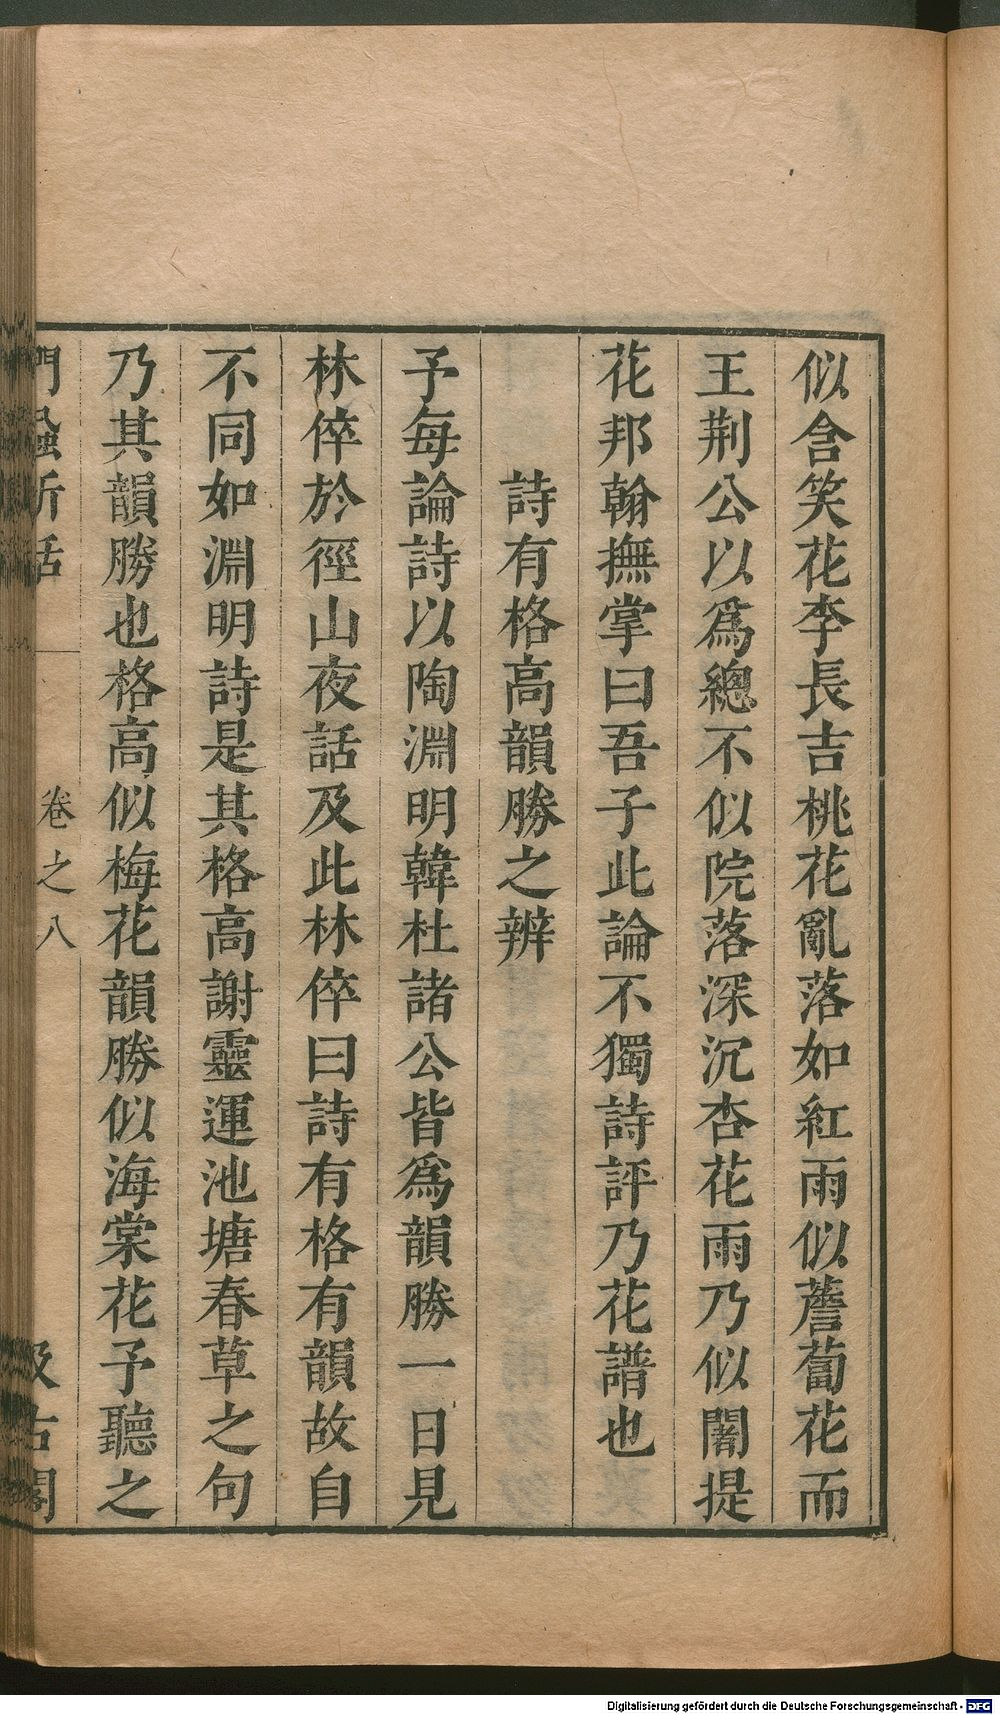 似含笑花李長吉桃花亂落如紅雨似薝蔔花而
王荆公以爲總不似院落深沉杏花雨乃似闍提
花邦翰撫掌曰吾子此論不獨詩評乃花譜也
詩有格高韻勝之辨
予每論詩以陶淵明韓杜諸公皆爲韻勝一日見
林倅於徑山夜話及此林倅曰詩有格有韻故自
不同如淵明詩是其格高謝靈運池塘春草之句
乃其韻勝也格高似梅花韻勝似海棠花予聽之
卷之八
Digitalisierung gefördert durch die Deutsche Forschungsgemeinschaft - DFG